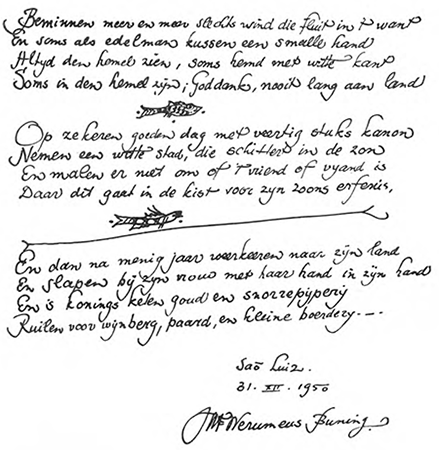 Beminnen meer en meer slechts wind die fluit in 't want
En soms als edelman kussen een smalle hand
Altyd den hemel zien, soms hemd met witte kant
Soms in den hemel zijn; Goddank, nooit lang aan land
Op zekeren goeden dag met veertig stuks kanon
Nemen een witte stad, die schittert in de zon
En malen er niet om of 't vriend of vyand is
Daar dit gaat in de kist voor zyn zoons erfenis.
En dan na menig jaar weerkeeren naar zijn land
En slapen bij zijn vrouw met haar hand in zijn hand
En 's konings keten goud en snorrepijperij
Ruilen voor wijnberg, paard, en kleine boerdery. -.-
Saõ Luiz.
31. XII. 1950
JWF Werumeus Buning.